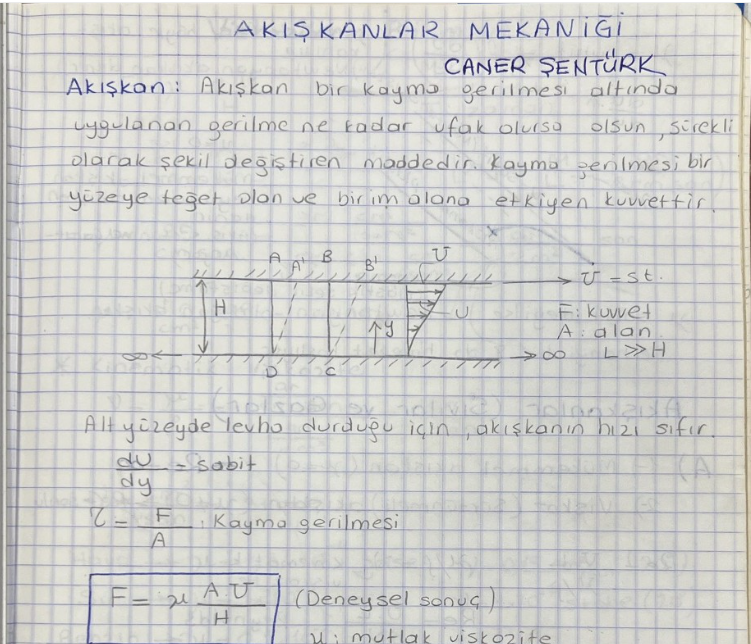 AKIŞKANLAR MEKANİĞİ
CANER ŞENTÜRK
Akışkan: Akışkan bir kayma gerilmesi altında
uygulanan gerilme ne kadar ufak olursa olsun, sürekli
olarak şekil değiştiren maddedir. Kayma gerilmesi bir
yüzeye teğet olan ve birim alana etkiyen kuvvettir.
A A' B B' U
U = st.
H U F: kuvvet
y A: alan
∞ ∞ L >> H
D C
Alt yüzeyde levha durduğu için, akışkanın hızı sıfır.
du/dy = sabit
τ = F/A : Kayma gerilmesi
F = μ A.U/H (Deneysel sonuç)
μ: mutlak viskozite